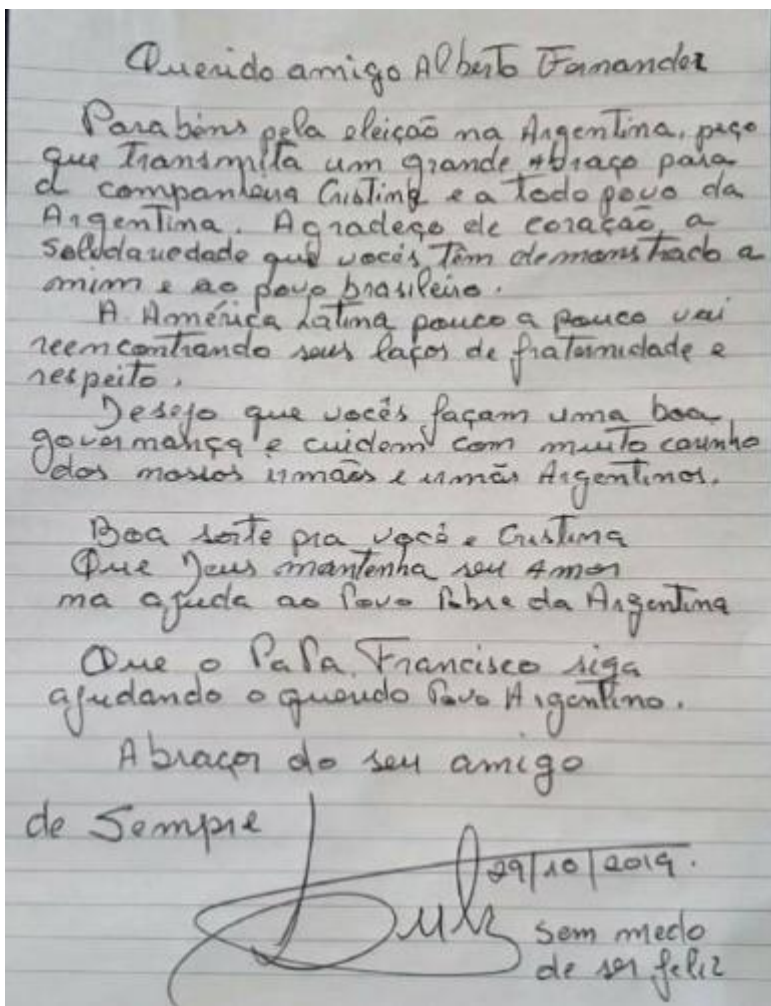 Querido amigo Alberto Fernandez
Parabéns pela eleição na Argentina, peço
que transmita um grande abraço para
a companheira Cristina e a todo povo da
Argentina. Agradeço de coração a
solidariedade que vocês têm demonstrado a
mim e ao povo brasileiro.
A América Latina pouco a pouco vai
reencontrando seus laços de fraternidade e
respeito.
Desejo que vocês façam uma boa
governança e cuidem com muito carinho
dos nossos irmãos e irmãs Argentinos.
Boa sorte pra você e Cristina
Que Deus mantenha seu Amor
na ajuda ao Povo Pobre da Argentina
Que o PaPa Francisco siga
ajudando o querido Povo Argentino.
Abraços do seu amigo
de Sempre
29/10/2019.
Lula
sem medo
de ser feliz